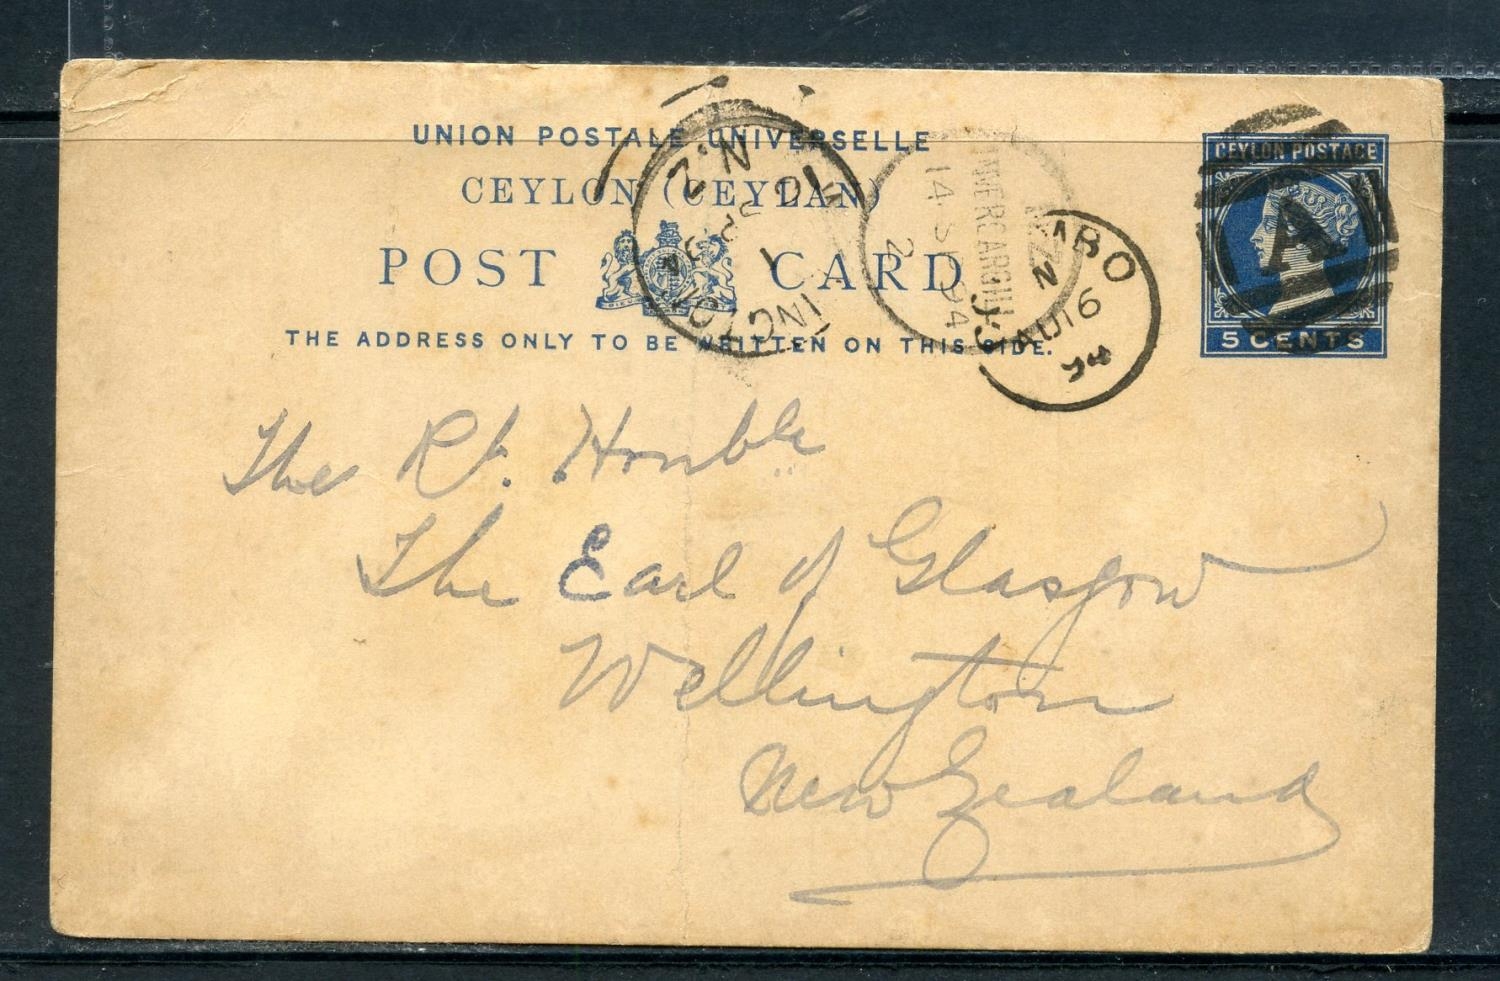 UNION POSTALE UNIVERSELLE
CEYLON (CEYLAN)
POST CARD
THE ADDRESS ONLY TO BE WRITTEN ON THIS SIDE.
CEYLON POSTAGE
A
5 CENTS
N.Z
16 SP
94
INVERCARGILL
N.Z
14 SP 94
2
MBO
N
AU 16
94
The Rt. Honble
The Earl of Glasgow
Wellington
New Zealand